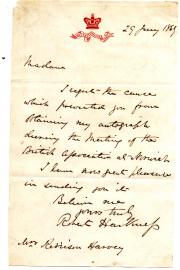 29 Jany 1869
Madam
I regret the cause
which prevented you from
obtaining my autograph
during the Meeting of the
British Association at Norwich
I have now great pleasure
in sending you it
Believe me
yours truly
Robert Harkness
Mrs Harvey